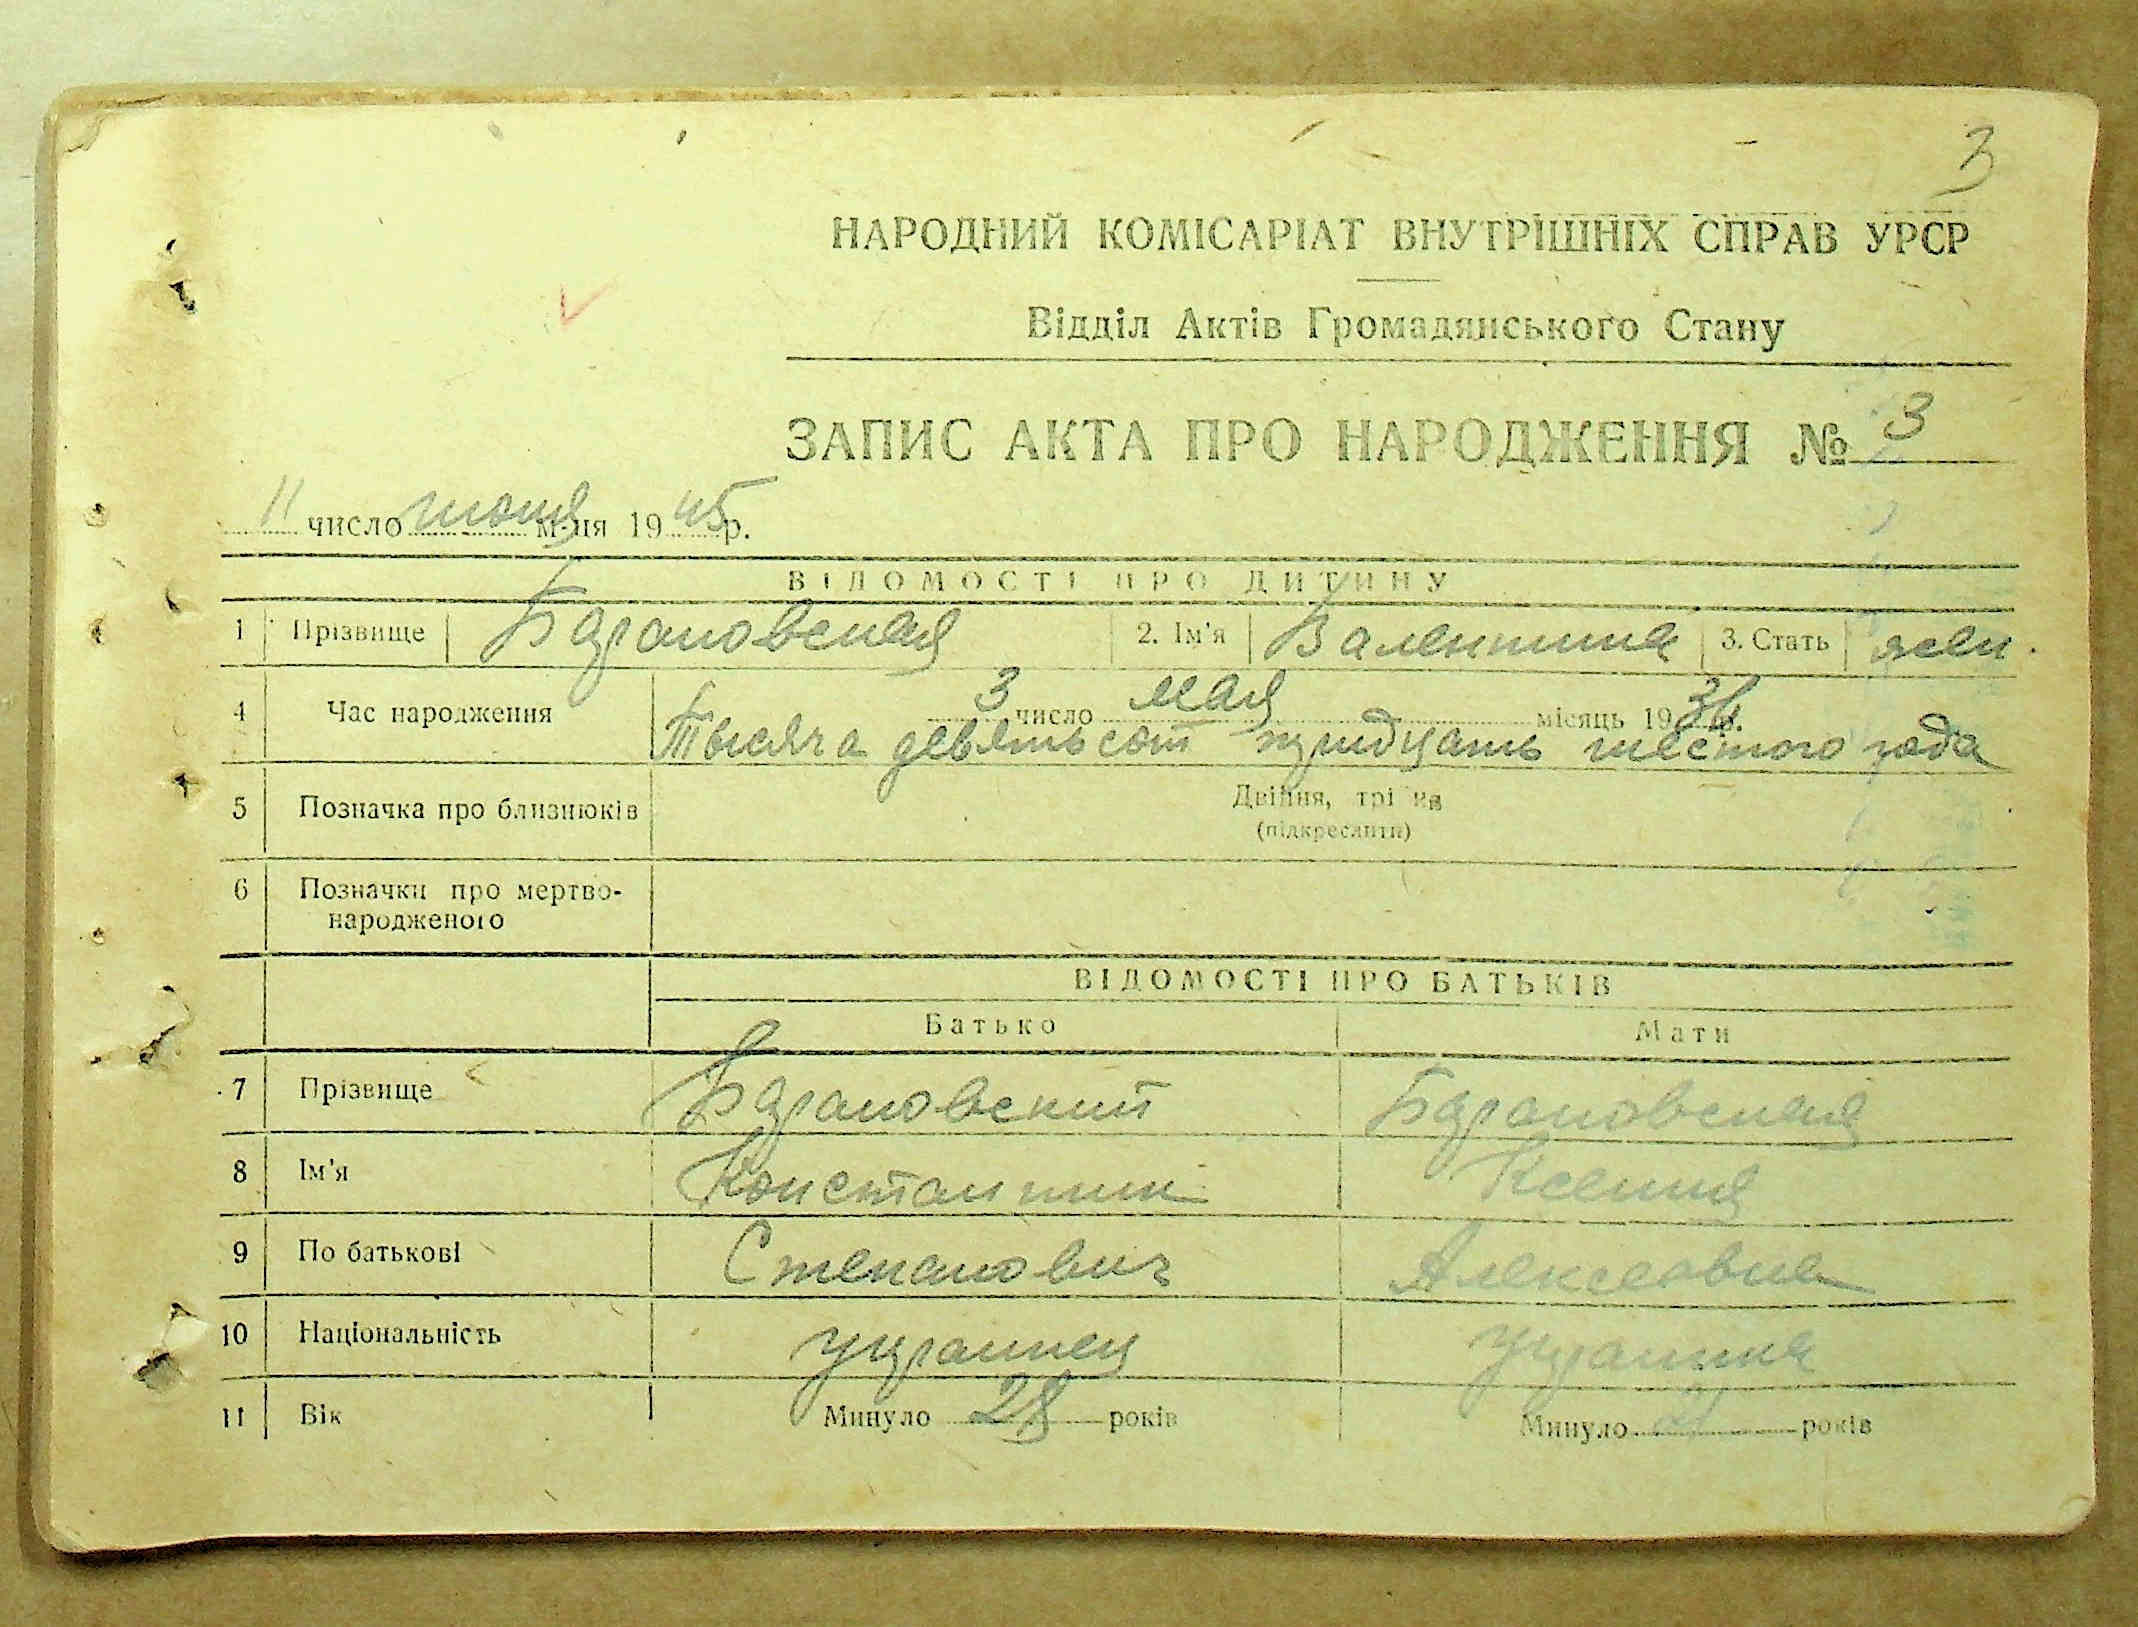 3
НАРОДНИЙ КОМІСАРІАТ ВНУТРІШНІХ СПРАВ УРСР
Відділ Актів Громадянського Стану
ЗАПИС АКТА ПРО НАРОДЖЕННЯ № 3
11 число июня м-ця 1945 р.
ВІДОМОСТІ ПРО ДИТИНУ
1 Прізвище Барановская 2. Ім'я Валентина 3. Стать жен.
4 Час народження 3 число мая місяць 1936 р.
Тысяча девятьсот тридцать шестого года
5 Позначка про близнюків Двійня, трійня
(підкреслити)
6 Позначки про мертво-
народженого
ВІДОМОСТІ ПРО БАТЬКІВ
Батько Мати
7 Прізвище Барановский Барановская
8 Ім'я Константин Ксения
9 По батькові Степанович Алексеевна
10 Національність украинец украинка
11 Вік Минуло 28 років Минуло років